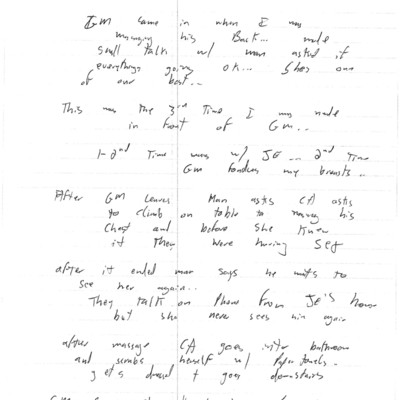 GM came in when I was
massaging his Back... made
small talk w/ man asked if
everythings going OK... Shes one
of our best...
This was the 3rd Time I was nude
in front of GM...
1-2nd Time was w/ JE... 2nd Time
GM fondles my breasts..
After GM leaves Man asks CA asks
to climb on table to massage his
Chest and before she knew
it They were having Sex
after it ended man says he wants to
see her again..
They talk on Phone from JE's house
but she never sees him again
after massage CA goes into bathroom
and scrubs herself w/ Paper towels..
gets dressed + goes downstairs